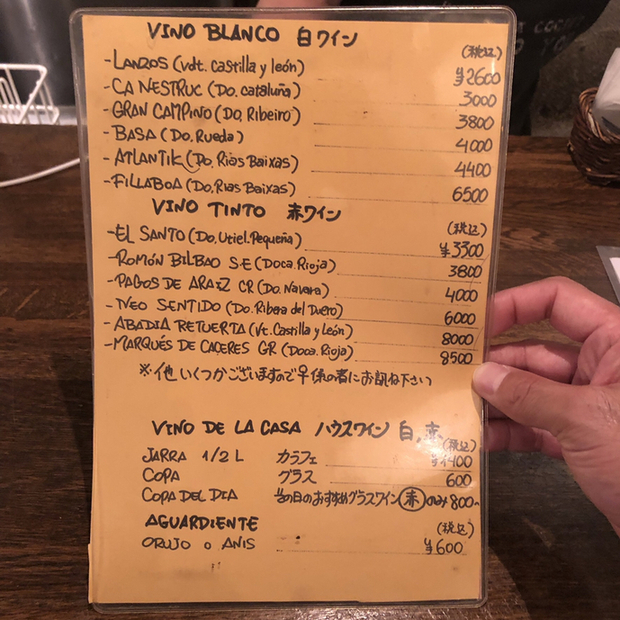 VINO BLANCO 白ワイン (税込)
-LANZOS (vdt. Castilla y león) ¥2600
-CA NESTRUC (Do. cataluña) 3000
-GRAN CAMPINO (DO. Ribeiro) 3800
-BASA (Do. Rueda) 4000
-ATLANTIK (Do. Rias Baixas) 4400
-FILLABOA (Do. Rias Baixas) 6500
VINO TINTO 赤ワイン (税込)
-EL SANTO (Do. Utiel. Pequeña) ¥3300
-ROMÓN BILBAO S.E (Doca. Rioja) 3800
-PAGOS DE ARAIZ CR (Do. Navara) 4000
-NEO SENTIDO (Do. Ribera del Duero) 6000
-ABADIA RETUERTA (Vt. Castilla y León) 8000
-MARQUÉS DE CACERES GR (Doca. Rioja) 8500
※他いくつかございますので係の者にお訊ね下さい
VINO DE LA CASA ハウスワイン 白,赤 (税込)
JARRA 1/2 L カラフェ ¥1400
COPA グラス 600
COPA DEL DIA 当の日のおすすめグラスワイン(赤)のみ 800~
AGUARDIENTE (税込)
ORUJO O ANIS ¥600